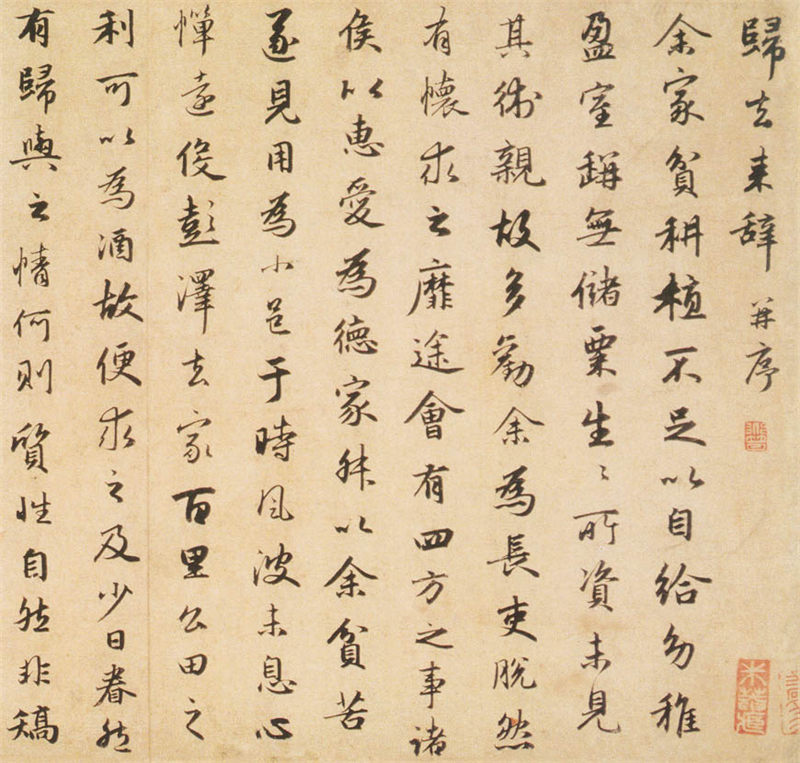 歸去来辞 并序
余家貧耕植不足以自給幼稚
盈室缾無儲粟生〻所資未見
其術親故多勸余為長吏脫然
有懷求之靡途會有四方之事諸
侯以惠愛為德家叔以余貧苦
遂見用為小邑于時風波未息心
憚遠役彭澤去家百里公田之
利可以為酒故便求之及少日眷然
有歸與之情何則質性自然非矯